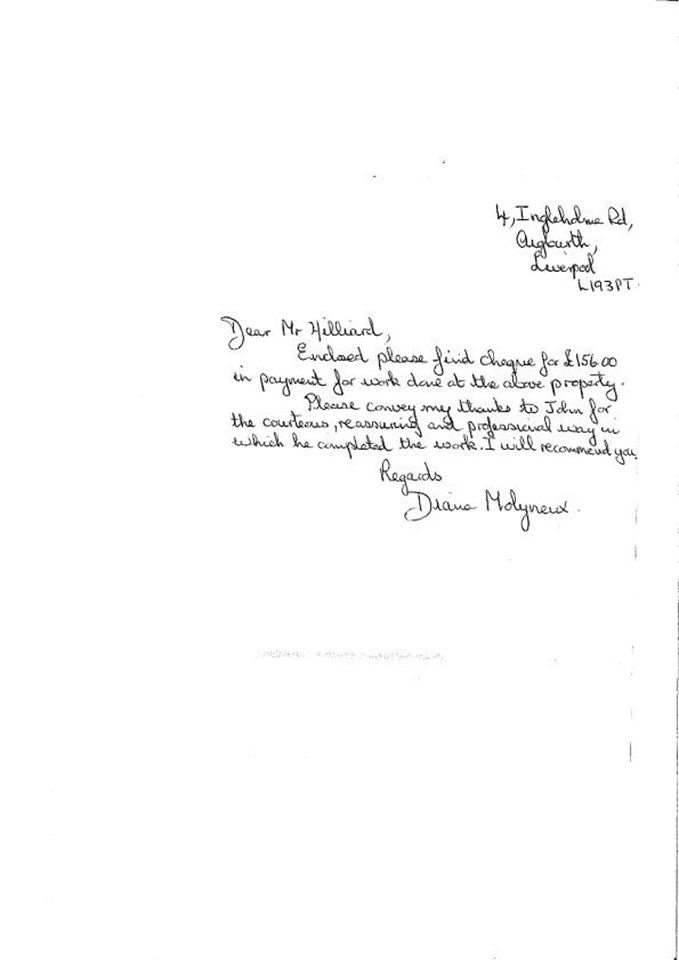 4, Ingleholme Rd,
Aigburth,
Liverpool
L193PT.
Dear Mr Hilliard,
Enclosed please find cheque for £156.00
in payment for work done at the above property.
Please convey my thanks to John for
the courteous, reassuring and professional way in
which he completed the work. I will recommend you.
Regards
Diana Molyneux.